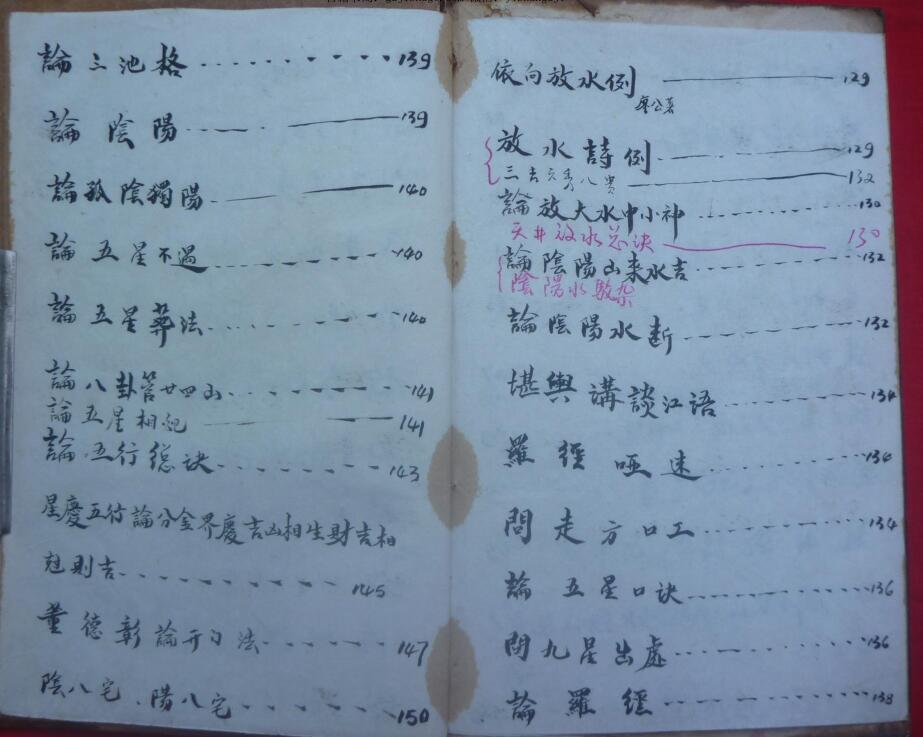 依向放水例 129
廖公著
放水詩例 129
三吉六秀八贵 132
論放大水中小神 130
天井放水总诀 130
論陰陽山来水吉 132
陰陽水驳杂
論陰陽水断 132
堪輿講談江语 134
羅經啞迷 134
問走方口工 134
論五星口诀 136
問九星出處 136
論羅經 138
論三池格 139
論陰陽 139
論孤陰獨陽 140
論五星不遇 140
論五星葬法 140
論八卦管廿四山 141
論五星相尅 141
論五行總诀 143
星慶五行論分金界慶吉凶相生財吉相
尅則吉 145
董德彰論开勺法 147
陰八宅、陽八宅 150